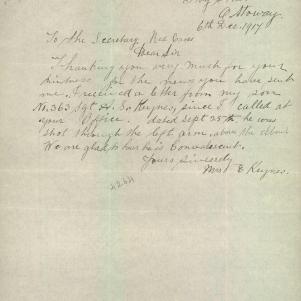 O'Motway.
6th Dec. 1917
To the Secretary Red Cross
Dear Sir
Thanking you very much for your
kindness for the news you have sent
me. I received a letter from my son
No. 363 Sgt H. So Keynes, since I called at
your Office. dated Sept 25th he was
shot through the left arm, above the elbow
We are glad to hear he is Convalescent.
Yours Sincerely
Mrs E Keynes.
4264